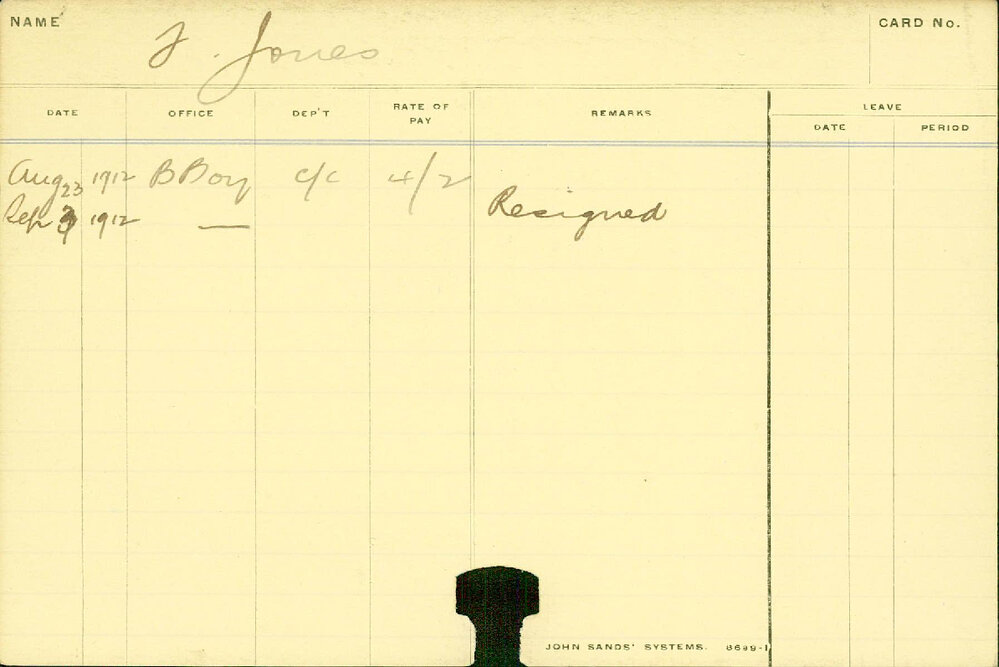 NAME F. Jones CARD No.
DATE OFFICE DEP'T RATE OF PAY REMARKS LEAVE
DATE PERIOD
Aug 23 1912 B Boy c/c 4/2
Sep 3 1912 — Resigned
JOHN SANDS' SYSTEMS. 8699-1